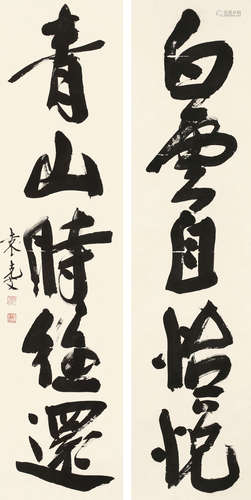 白雲自怡悅
青山時往還